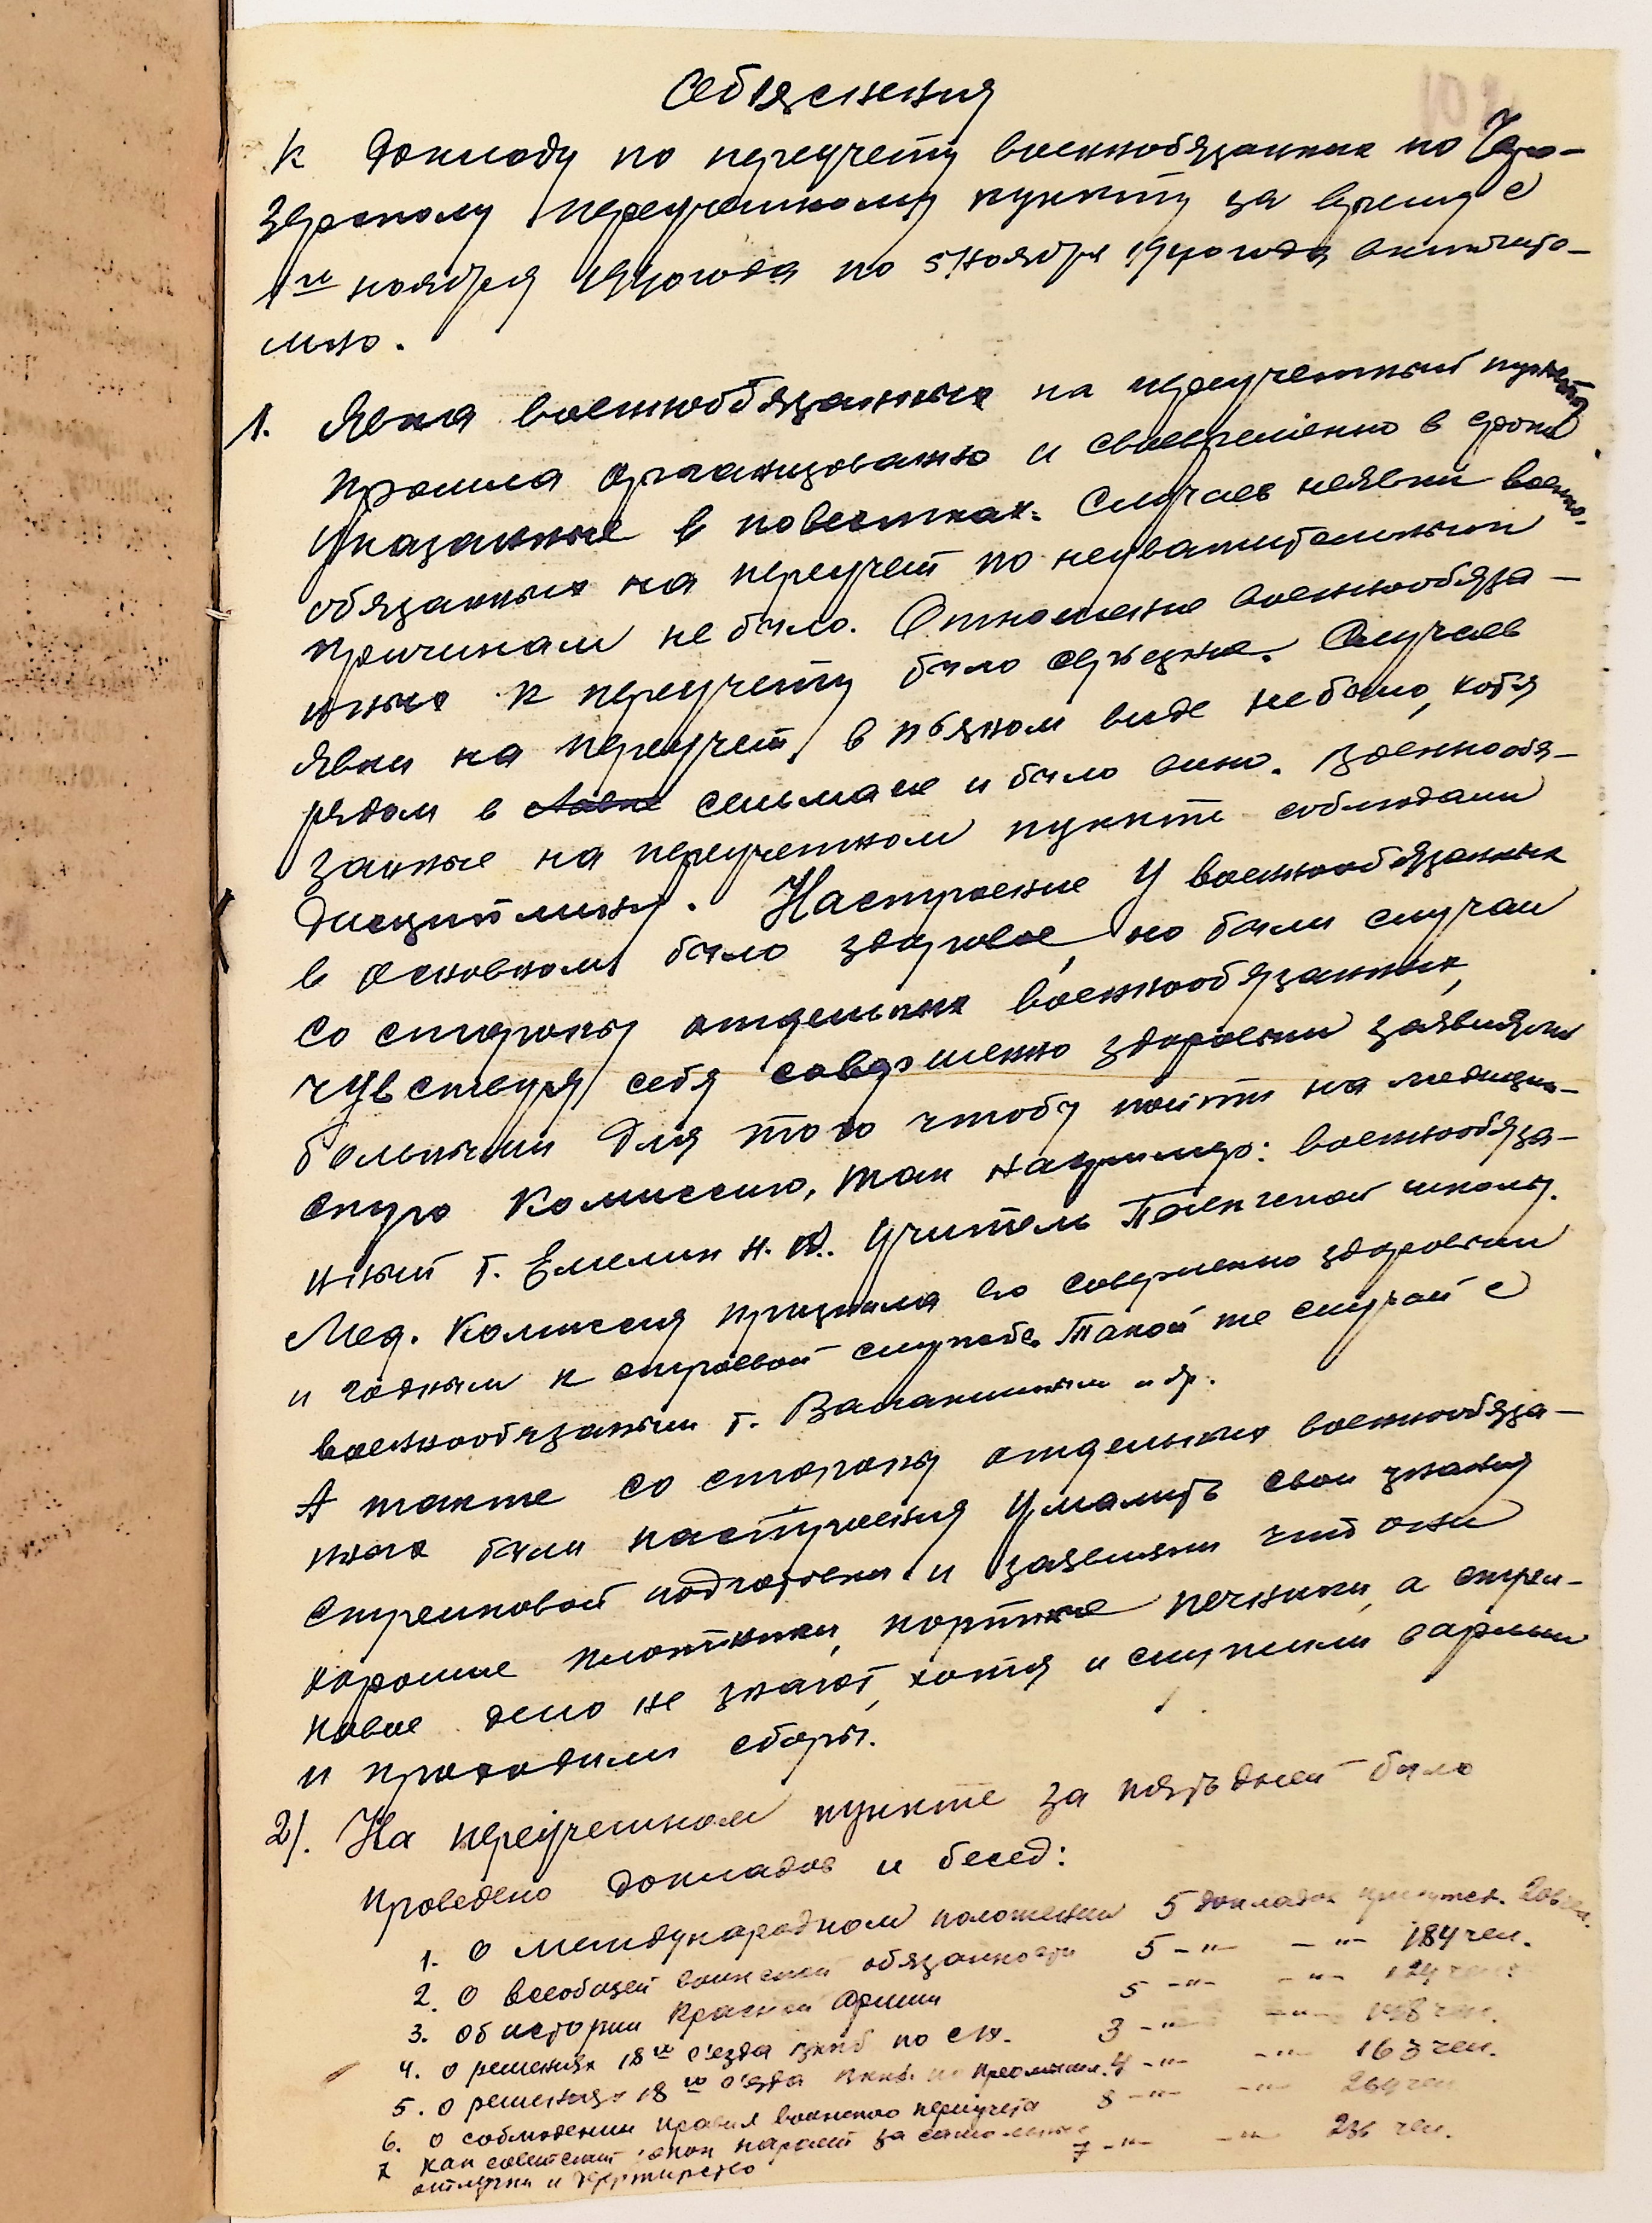 Обяснения
к докладу по переучету военнообязанных по
зерскому переучетному пункту за время с
1го ноября 1940 года по 5 ноября 1940 года включите-
льно.
1. Явка военнообязанных на переучетный пункт
прошла организованно и своевременно в сроки
указанные в повестках. Случаев неявки военно-
обязанных на переучет по неуважительным
причинам не было. Отношение военнообяза-
нных к переучету было серьезное. Случаев
явки на переучет в пьяном виде не было, хотя
рядом в сельмаге и было вино. Военнообя-
занные на переучетном пункте соблюдали
дисциплину. Настроение у военнообязанных
в основном было здоровое, но были случаи
со стороны отдельных военнообязанных,
чувствуя себя совершенно здоровыми заявляли
больными для того чтобы пойти на медицин-
скую комиссию, так например: военнообяза-
нный т. Емелин Н. учитель школы.
Мед. комиссия признала его совершенно здоровым
и годным к строевой службе. Такой же случай с
военнообязаным т. и др.
А также со стороны отдельных военнообяза-
нных были настроения умалить свои знания
стрелковой подготовки и заявляли что они
хорошие плотники, портные печники, а стрел-
ковое дело не знают, хотя и служили в армии
и проходили сборы.
2). На переучетном пункте за пять дней было
проведено докладов и бесед:
1. О международном положении 5 докладов присутст.
2. О всеобщей воинской обязанности 5 -"- -"- 184 чел.
3. Об истории Красной Армии 5 -"- -"- 124 чел.
4. О решениях 18го с'езда вкпб по с/х. 3 -"- -"- чел.
5. О решениях 18го с'езда вкпб по промышл. 4 -"- -"- 163 чел.
6. О соблюдении правил воинского переучета 8 -"- -"- 264 чел
7 Как советский закон карает за самовольные 7 -"- -"- 236 чел.
отлучки и дезертирство